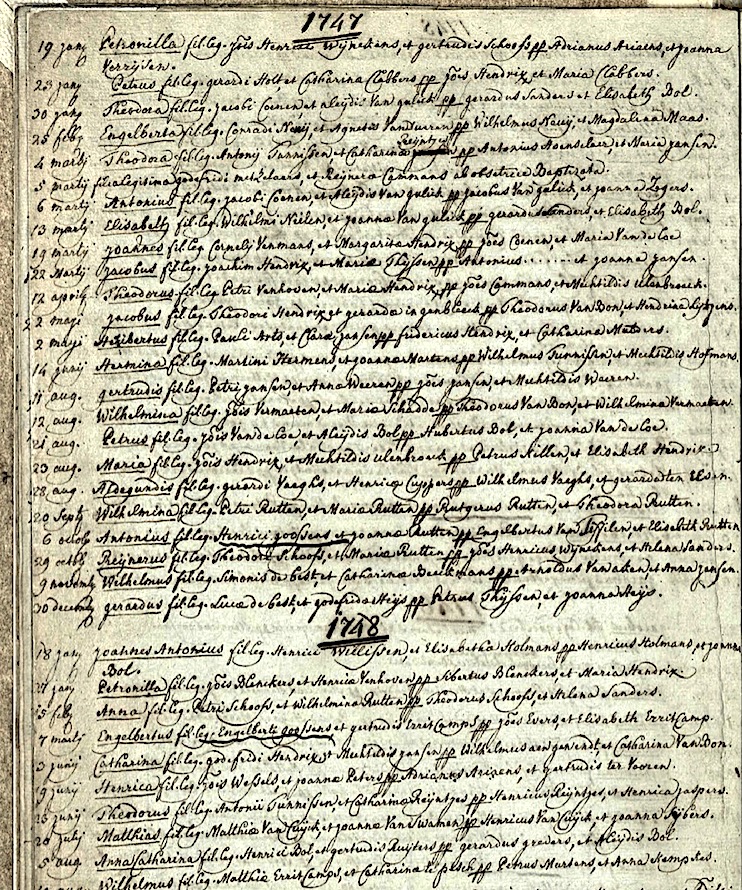 1747
19 janŷ Petronilla fil: leg. jōis Henrici Wijnekens, et gertrudis Schoofs pp Adrianus Ariaens, et joanna
Verrijsen.
23 janŷ Petrus fil: leg. gerardi Holt, et Catharina Clabbers pp jōis Hendrix, et Maria Clabbers.
30 janŷ Theodora fil: leg. jacobi Coenen, et Aleijdis Van gulick pp gerardus Sanders et Elisabeth Bol.
25 febŷ Engelberta fil: leg. Conradi et Agnetis Van pp Wilhelmus et Magdalena Maas.
4 martij Theodora fil: leg. Antonij Tunnissen, et Catharina Reijntjes pp Antonius et Maria jansen.
5 martij filia legitima godefridi et Reijnera Commans ab obstetrice Baptizata.
6 martij Antonius fil: leg. jacobi Coenen, et Aleijdis Van gulick pp jacobus Van gulick, et joanna Zegers.
13 martij Elisabeth fil: leg. Wilhelmi Nielen, et joanna Van gulick pp gerardus Sanders, et Elisabeth Bol.
19 martij joannes fil: leg. Cornelij Venmans, et Margarita Hendrix pp jōes Coenen, et Maria Van de Loe
22 Martij jacobus fil: leg. joachim Hendrix, et Maria Thijssen pp Antonius ........ et joanna jansen.
12 aprilij Theodorus fil: leg. Petri Venhoven, et Maria Hendrix, pp jōes Commans, et Mechtildis ulenbroeck.
2 maji jacobus fil: leg. Theodori Hendrix, et gerarda ingenbleeck pp Theodorus Van Bon, et Hendrina
2 maji Heribertus fil: leg. Pauli Arts, et Clara jansen pp fredericus Hendrix, et Catharina Mulders.
14 junij Hermina fil: leg. Martini Hermens, et joanna Martens pp Wilhelmus Tunnissen, et Mechtildis Hofmans.
11 aug. gertrudis fil: leg. Petri jansen, et Anna Weeren pp jōes jansen, et Mechtildis Weeren.
12 aug. Wilhelmina fil: leg. jōis Vermaeten, et Maria Schadde pp Theodorus Van Bon, et Wilhelmina Vermaeten.
21 aug. Petrus fil: leg. jōis Van de Loe, et Aleijdis Bol pp Hubertus Bol, et joanna Van de Loe.
23 aug. Maria fil: leg. jōis Hendrix, et Mechtildis ulenbroeck pp Petrus Killen, et Elisabeth Hendrix.
28 aug. Aldegundis fil: leg. gerardi Vaeghs, et Henrica Cuppers pp Wilhelmus Vaeghs, et gerarda ten Elsen.
20 Septŷ Wilhelmina fil: leg. Petri Rutten, et Maria Rutten pp Rutgerus Rutten, et Theodora Rutten.
6 octob Antonius fil: leg. Henrici goossens et joanna Rutten pp Engelbertus Van et Elisabeth Rutten
29 octob Reijnerus fil: leg. Theodori Schoofs, et Maria Rutten pp jōes Henricus Wijnekens, et Helena Sanders.
9 novembŷ Wilhelmus fil: leg. Simonis de best et Catharina Beeckmans pp Arnoldus Van aken, et Anna jansen.
30 decembŷ gerardus fil: leg. Luca de best, et godefrida Heijs pp Petrus Thijssen, et joanna Heijs.
1748
18 janŷ joannes Antonius fil: leg. Henrici Willissen, et Elisabetha Holmans pp Henricus Holmans, et joanna
Bol.
27 janŷ Petronilla fil: leg. jōis Blenckers, et Henrica Venhoven pp Sibertus Blenckers, et Maria Hendrix.
15 febŷ Anna fil: leg. Petri Schoofs, et Wilhelmina Rutten pp Theodorus Schoofs, et Helena Sanders.
7 martij Engelbertus fil: leg. Engelberti goossens et gertrudis Erritcamps pp jōes Evers, et Elisabeth Erritcamp.
3 junij Catharina fil: leg. godefridi Hendrix, et Mechtildis jansen pp Wilhelmus aengenendt, et Catharina Van Bon.
19 junij Henrica fil: leg. jōis Wessels, et joanna Peters pp Adrianus Ariaens, et gertrudis ter Vooren.
23 junij Theodorus fil: leg. Antonii Tunnissen, et Catharina Reijntjes pp Henricus Reijntjes, et Henrica jaspers.
20 julij Matthias fil: leg. Matthia Van Cuijck, et joanna Van pp Henricus Van Cuijck, et joanna
5 aug Anna Catharina fil: leg. Henrici Bol, et gertrudis Ruijters pp gerardus greders, et Aleijdis Bol.
Wilhelmus fil: leg. Matthia Erritcamps, et Catharina pp Petrus Martens, et Anna Kempkes.